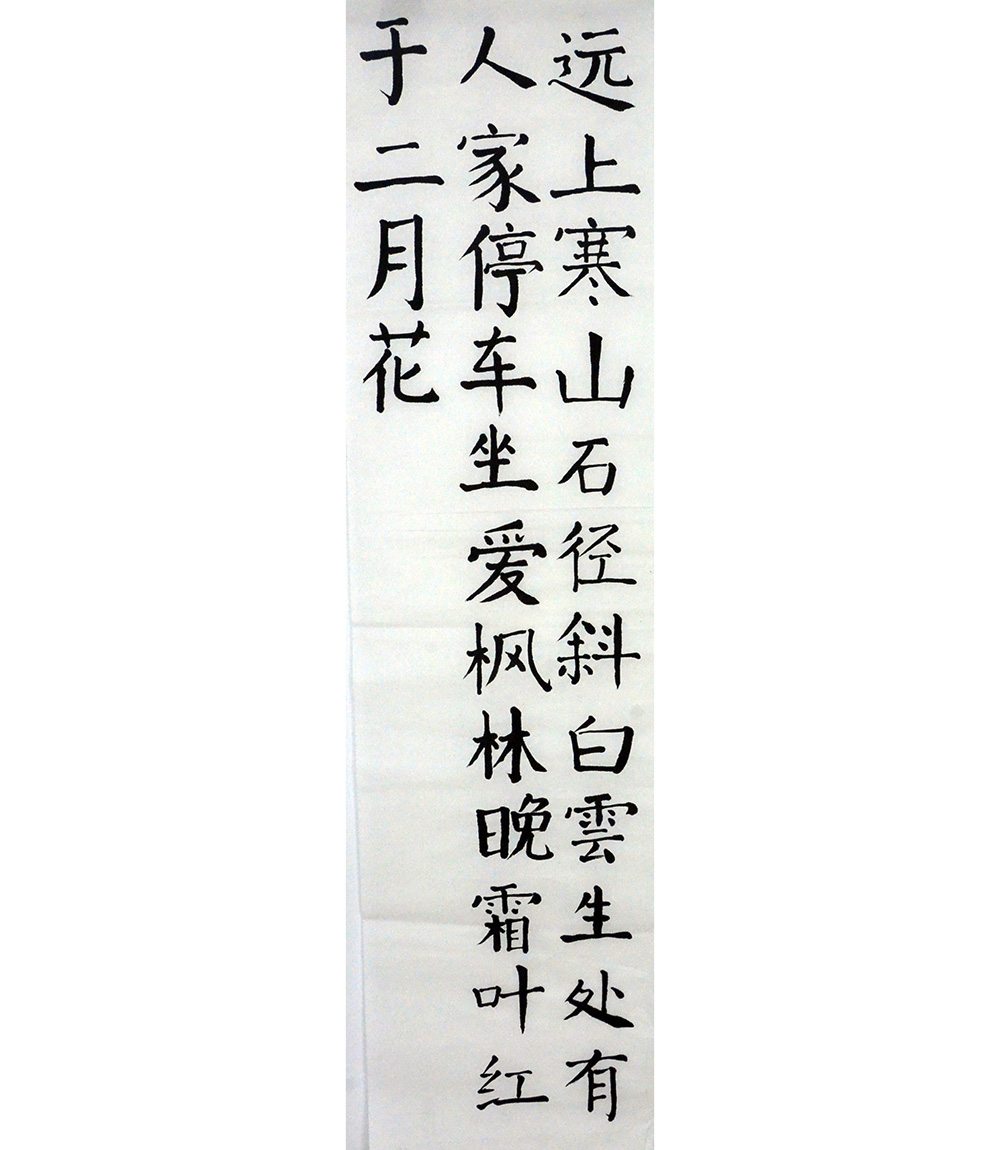 远上寒山石径斜白雲生处有
人家停车坐爱枫林晚霜叶红
于二月花